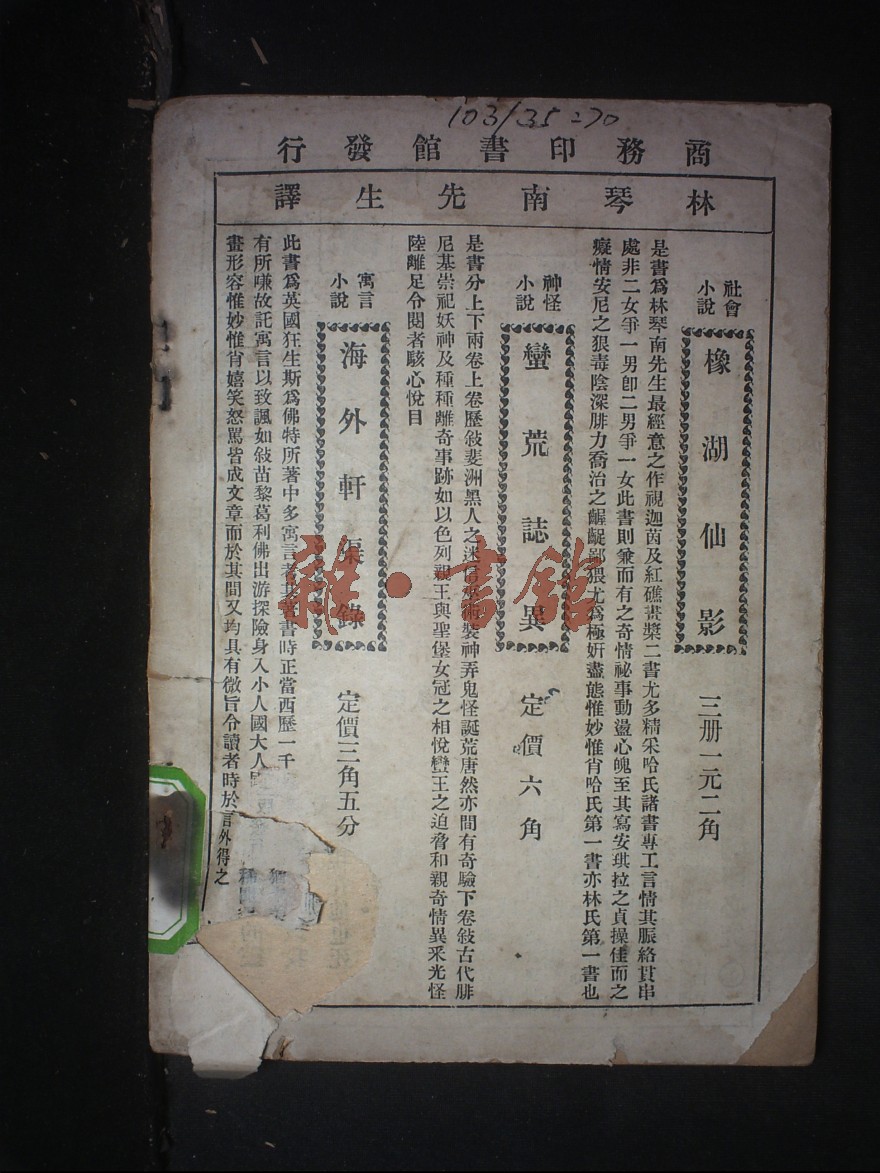 103/35=70
商務印書館發行
林琴南先生譯
社會小說
橡湖仙影
三册一元二角
是書爲林琴南先生最經意之作視迦茵及紅礁畫槳二書尤多精采哈氏諸書專工言情其脈絡貫串
處非二女爭一男卽二男爭一女此書則兼而有之奇情祕事動盪心魄至其寫安琪拉之貞操佳而之
癡情安尼之狠毒陰深腓力喬治之齷齪鄙猥尤爲極妍盡態惟妙惟肖哈氏第一書亦林氏第一書也
神怪小說
蠻荒誌異
定價六角
是書分上下兩卷上卷歷敍斐洲黑人之迷信巫術裝神弄鬼怪誕荒唐然亦間有奇驗下卷敍古代腓
尼基崇祀妖神及種種離奇事跡如以色列親王與聖堡女冠之相悅蠻王之迫脅和親奇情異采光怪
陸離足令閱者駭心悅目
寓言小說
海外軒渠錄
定價三角五分
此書爲英國狂生斯爲佛特所著中多寓言者其著書時正當西歷一千
有所嗛故託寓言以致諷如敍苗黎葛利佛出游探險身入小人國大人
畫形容惟妙惟肖嬉笑怒罵皆成文章而於其間又均具有微旨令讀者時於言外得之
雜·書館